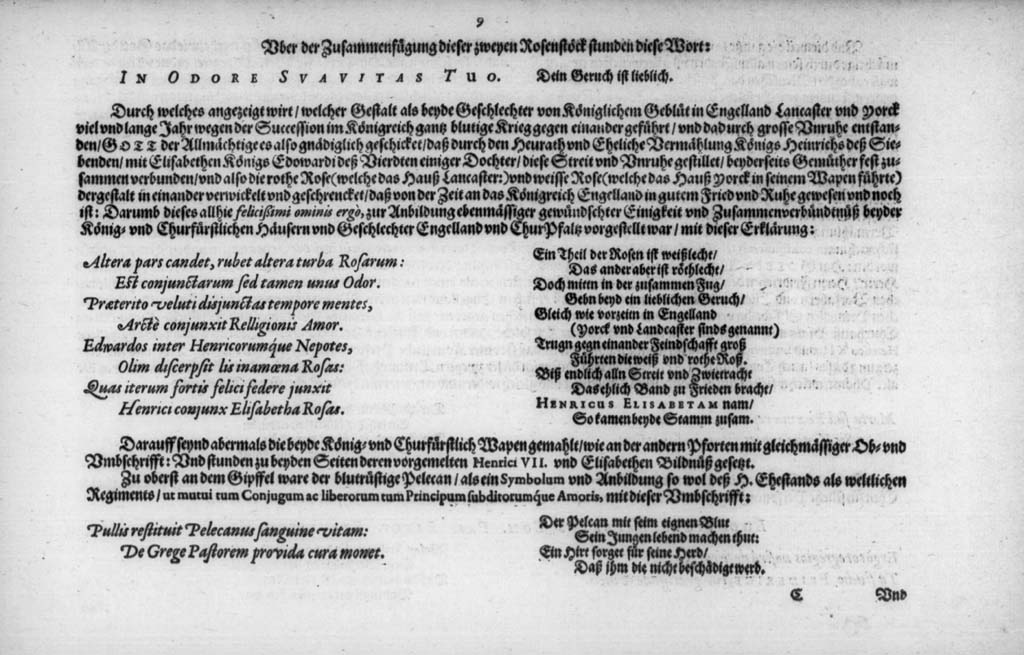 9
Vber der Zusammenfügung dieser zweyen Rosenstöck stunden diese Wort:
IN ODORE SVAVITAS TUO. Dein Geruch ist lieblich.
Durch welches angezeigt wirt/ welcher Gestalt als beyde Geschlechter von Königlichem Geblüt in Engelland Lancaster vnd Yorck
viel vnd lange Jahr wegen der Succession im Königreich gantz blutige Krieg gegen einander geführt/ vnd dadurch grosse Vnruhe entstan-
den/ GOTT der Allmächtige es also gnädiglich geschicket/ daß durch den Heurath vnd Eheliche Vermählung Königs Heinrichs deß Sie-
benden/ mit Elisabethen Königs Edowardi deß Vierdten einiger Dochter/ diese Streit vnd Vnruhe gestillet/ beyderseits Gemüther fest zu-
sammen verbunden/ vnd also die rothe Rose (welche das Hauß Lancaster:) vnd weisse Rose (welche das Hauß Yorck in seinem Wapen führte)
dergestalt in einander verwickelt vnd geschrencket/ daß von der Zeit an das Königreich Engelland in gutem Fried vnd Ruhe gewesen vnd noch
ist: Darumb dieses allhie felicißimi ominis ergò, zur Anbildung ebenmässiger gewündschter Einigkeit vnd Zusammenverbündtnüß beyder
König- vnd Churfürstlichen Häusern vnd Geschlechter Engelland vnd ChurPfaltz vorgestellt war/ mit dieser Erklärung:
Altera pars candet, rubet altera turba Rosarum:
Est conjunctarum sed tamen unus Odor.
Præterito veluti disjunctas tempore mentes,
Arctè conjunxit Relligionis Amor.
Edwardos inter Henricorumque Nepotes,
Olim discerpsit lis inamœna Rosas:
Quas iterum fortis felici federe junxit
Henrici conjunx Elisabetha Rosas.
Ein Theil der Rosen ist weißlecht/
Das ander aber ist röthlecht/
Doch mitten in der zusammen Fug/
Gebn beyd ein lieblichen Geruch/
Gleich wie vorzeim in Engelland
(Yorck vnd Landcaster sinds genannt)
Trugn gegn einander Feindschafft groß
Führten die weiß vnd rothe Roß.
Biß endlich alln Streit vnd Zwietracht
Das ehlich Band zu Frieden bracht/
HENRICUS ELISABETAM nam/
So kamen beyde Stamm zusam.
Darauff seynd abermals die beyde König- vnd Churfürstlich Wapen gemahlt/ wie an der andern Pforten mit gleichmässiger Ob- vnd
Vmbschrifft: Vnd stunden zu beyden Seiten deren vorgemelten Henrici VII. vnd Elisabethen Bildnüß gesetzt.
Zu oberst an dem Gipffel ware der blutrüstige Pelecan/ als ein Symbolum vnd Anbildung so wol deß H. Ehestands als weltlichen
Regiments/ ut mutui tum Conjugum ac liberorum tum Principum subditorumque Amoris, mit dieser Vmbschrifft:
Pullis restituit Pelecanus sanguine vitam:
De Grege Pastorem provida cura monet.
Der Pelecan mit seim eignen Blut
Sein Jungen lebend machen thut:
Ein Hirt sorget für seine Herd/
Daß ihm die nicht beschädigt werd.
C Vnd